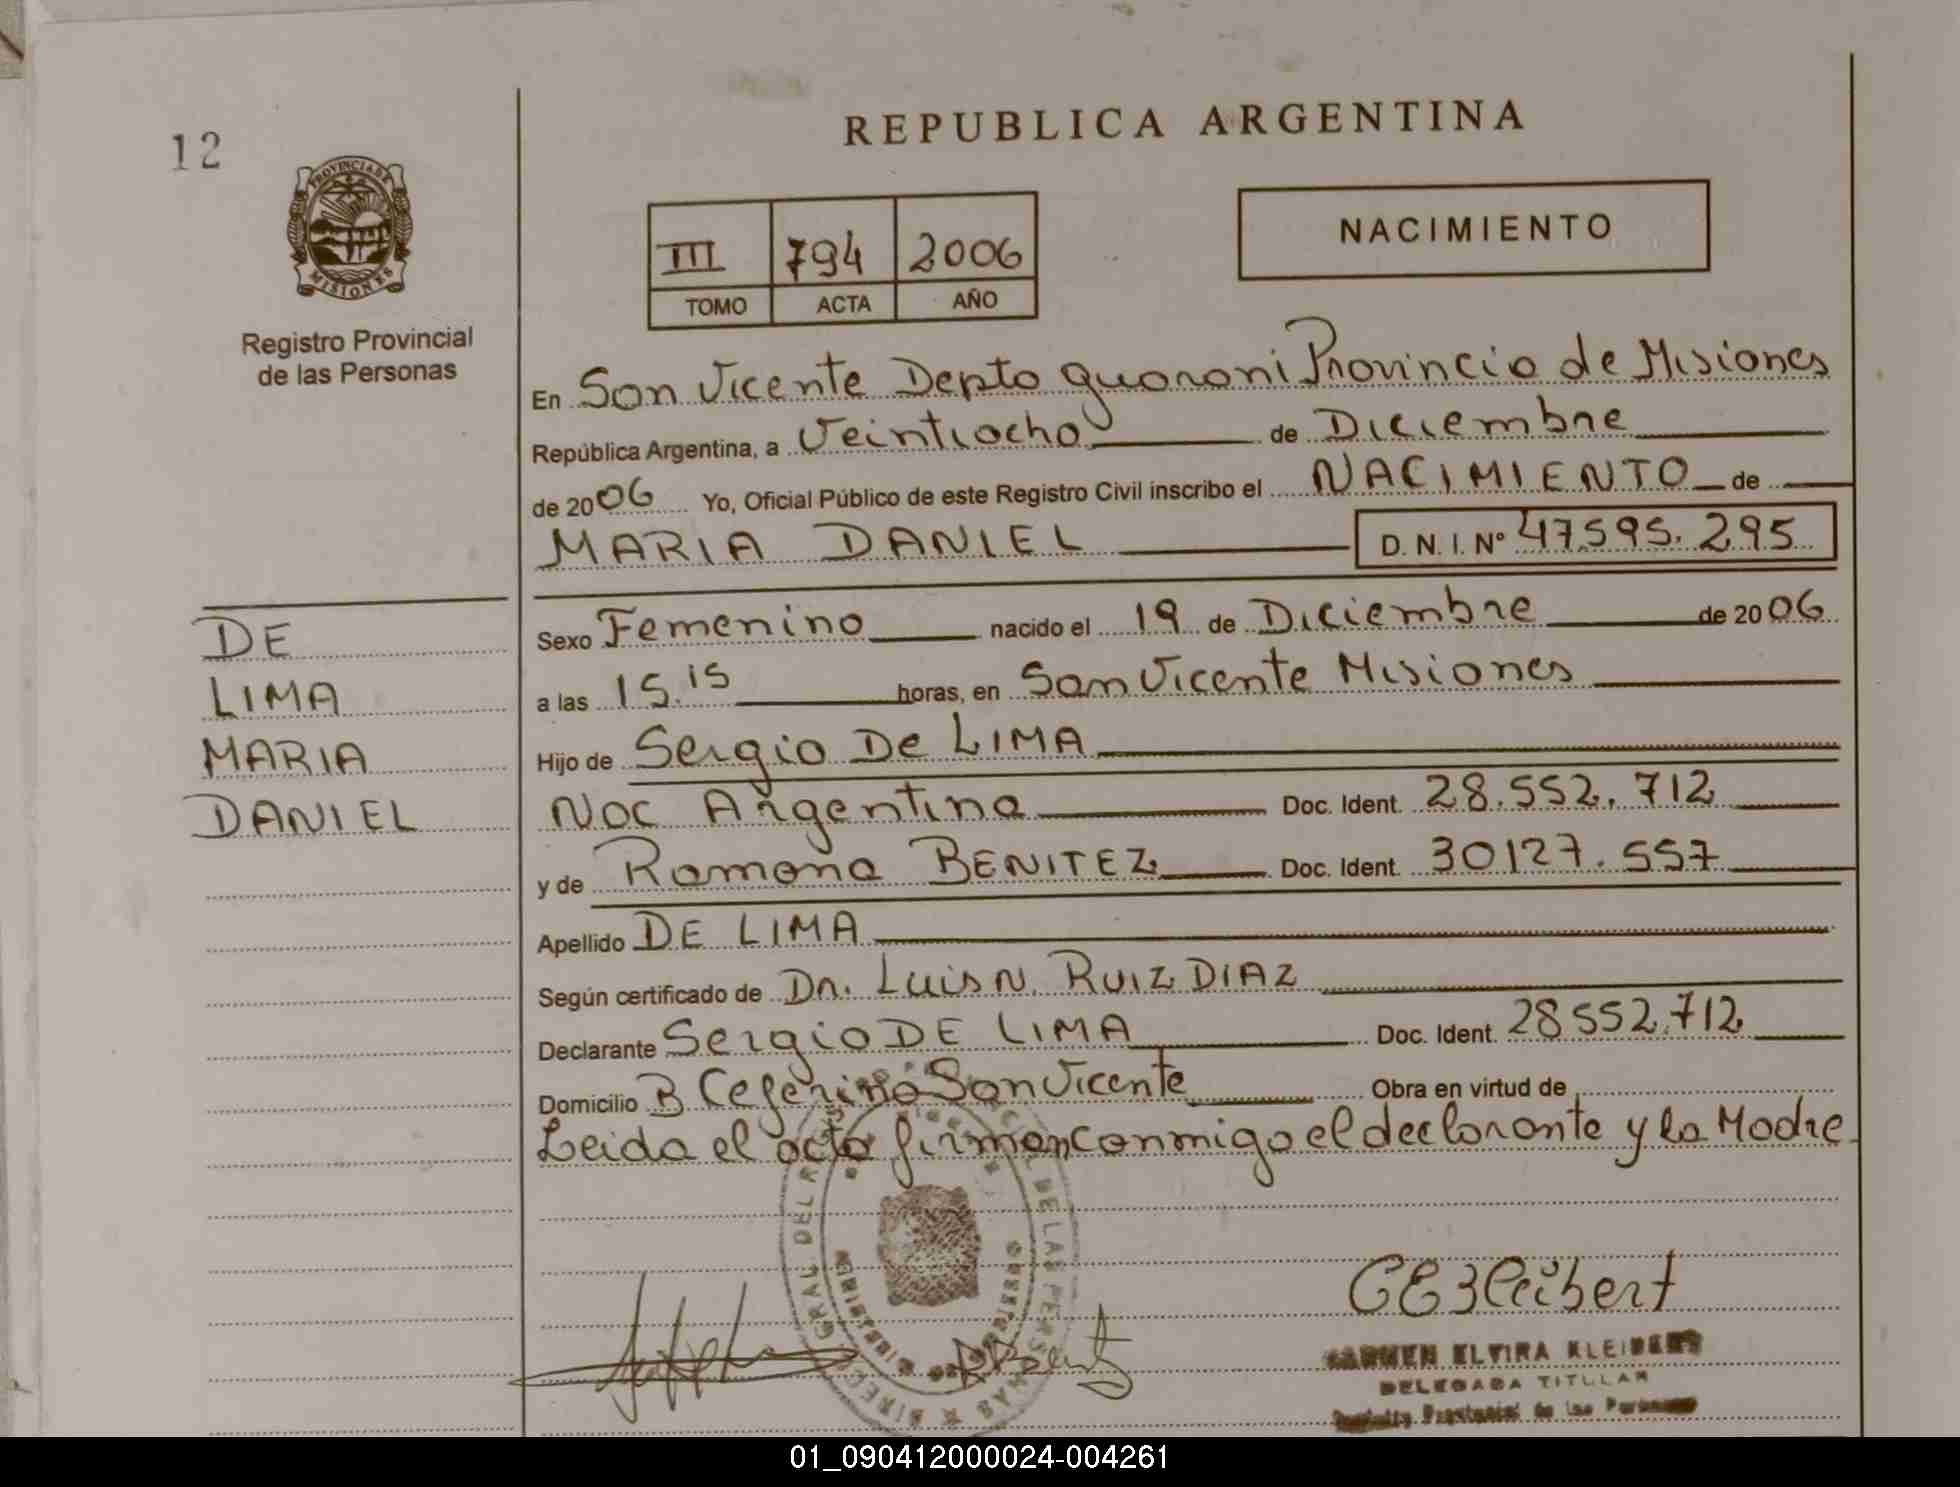 12
REPUBLICA ARGENTINA
PROVINCIA DE
MISIONES
Registro Provincial
de las Personas
III 794 2006
TOMO ACTA AÑO
NACIMIENTO
En San Vicente Depto guarani Provincia de Misiones
República Argentina, a Veintiocho de Diciembre
de 2006 Yo, Oficial Público de este Registro Civil inscribo el NACIMIENTO de
MARIA DANIEL D. N. I. Nº 47.595.295
DE
LIMA
MARIA
DANIEL
Sexo Femenino nacido el 19 de Diciembre de 2006
a las 15.15 horas, en San Vicente Misiones
Hijo de Sergio De LIMA
Nac Argentina Doc. Ident. 28.552.712
y de Ramona BENITEZ Doc. Ident. 30127.557
Apellido DE LIMA
Según certificado de Dr. Luis N. RUIZ DIAZ
Declarante Sergio DE LIMA Doc. Ident. 28552.712
Domicilio B Ceferino San Vicente Obra en virtud de
Leida el acta firman conmigo el declarante y la Madre
DE LAS PERSONAS
CARMEN ELVIRA KLEIBERT
DELEGADA TITULAR
Registro Provincial de las Personas
01_090412000024-004261